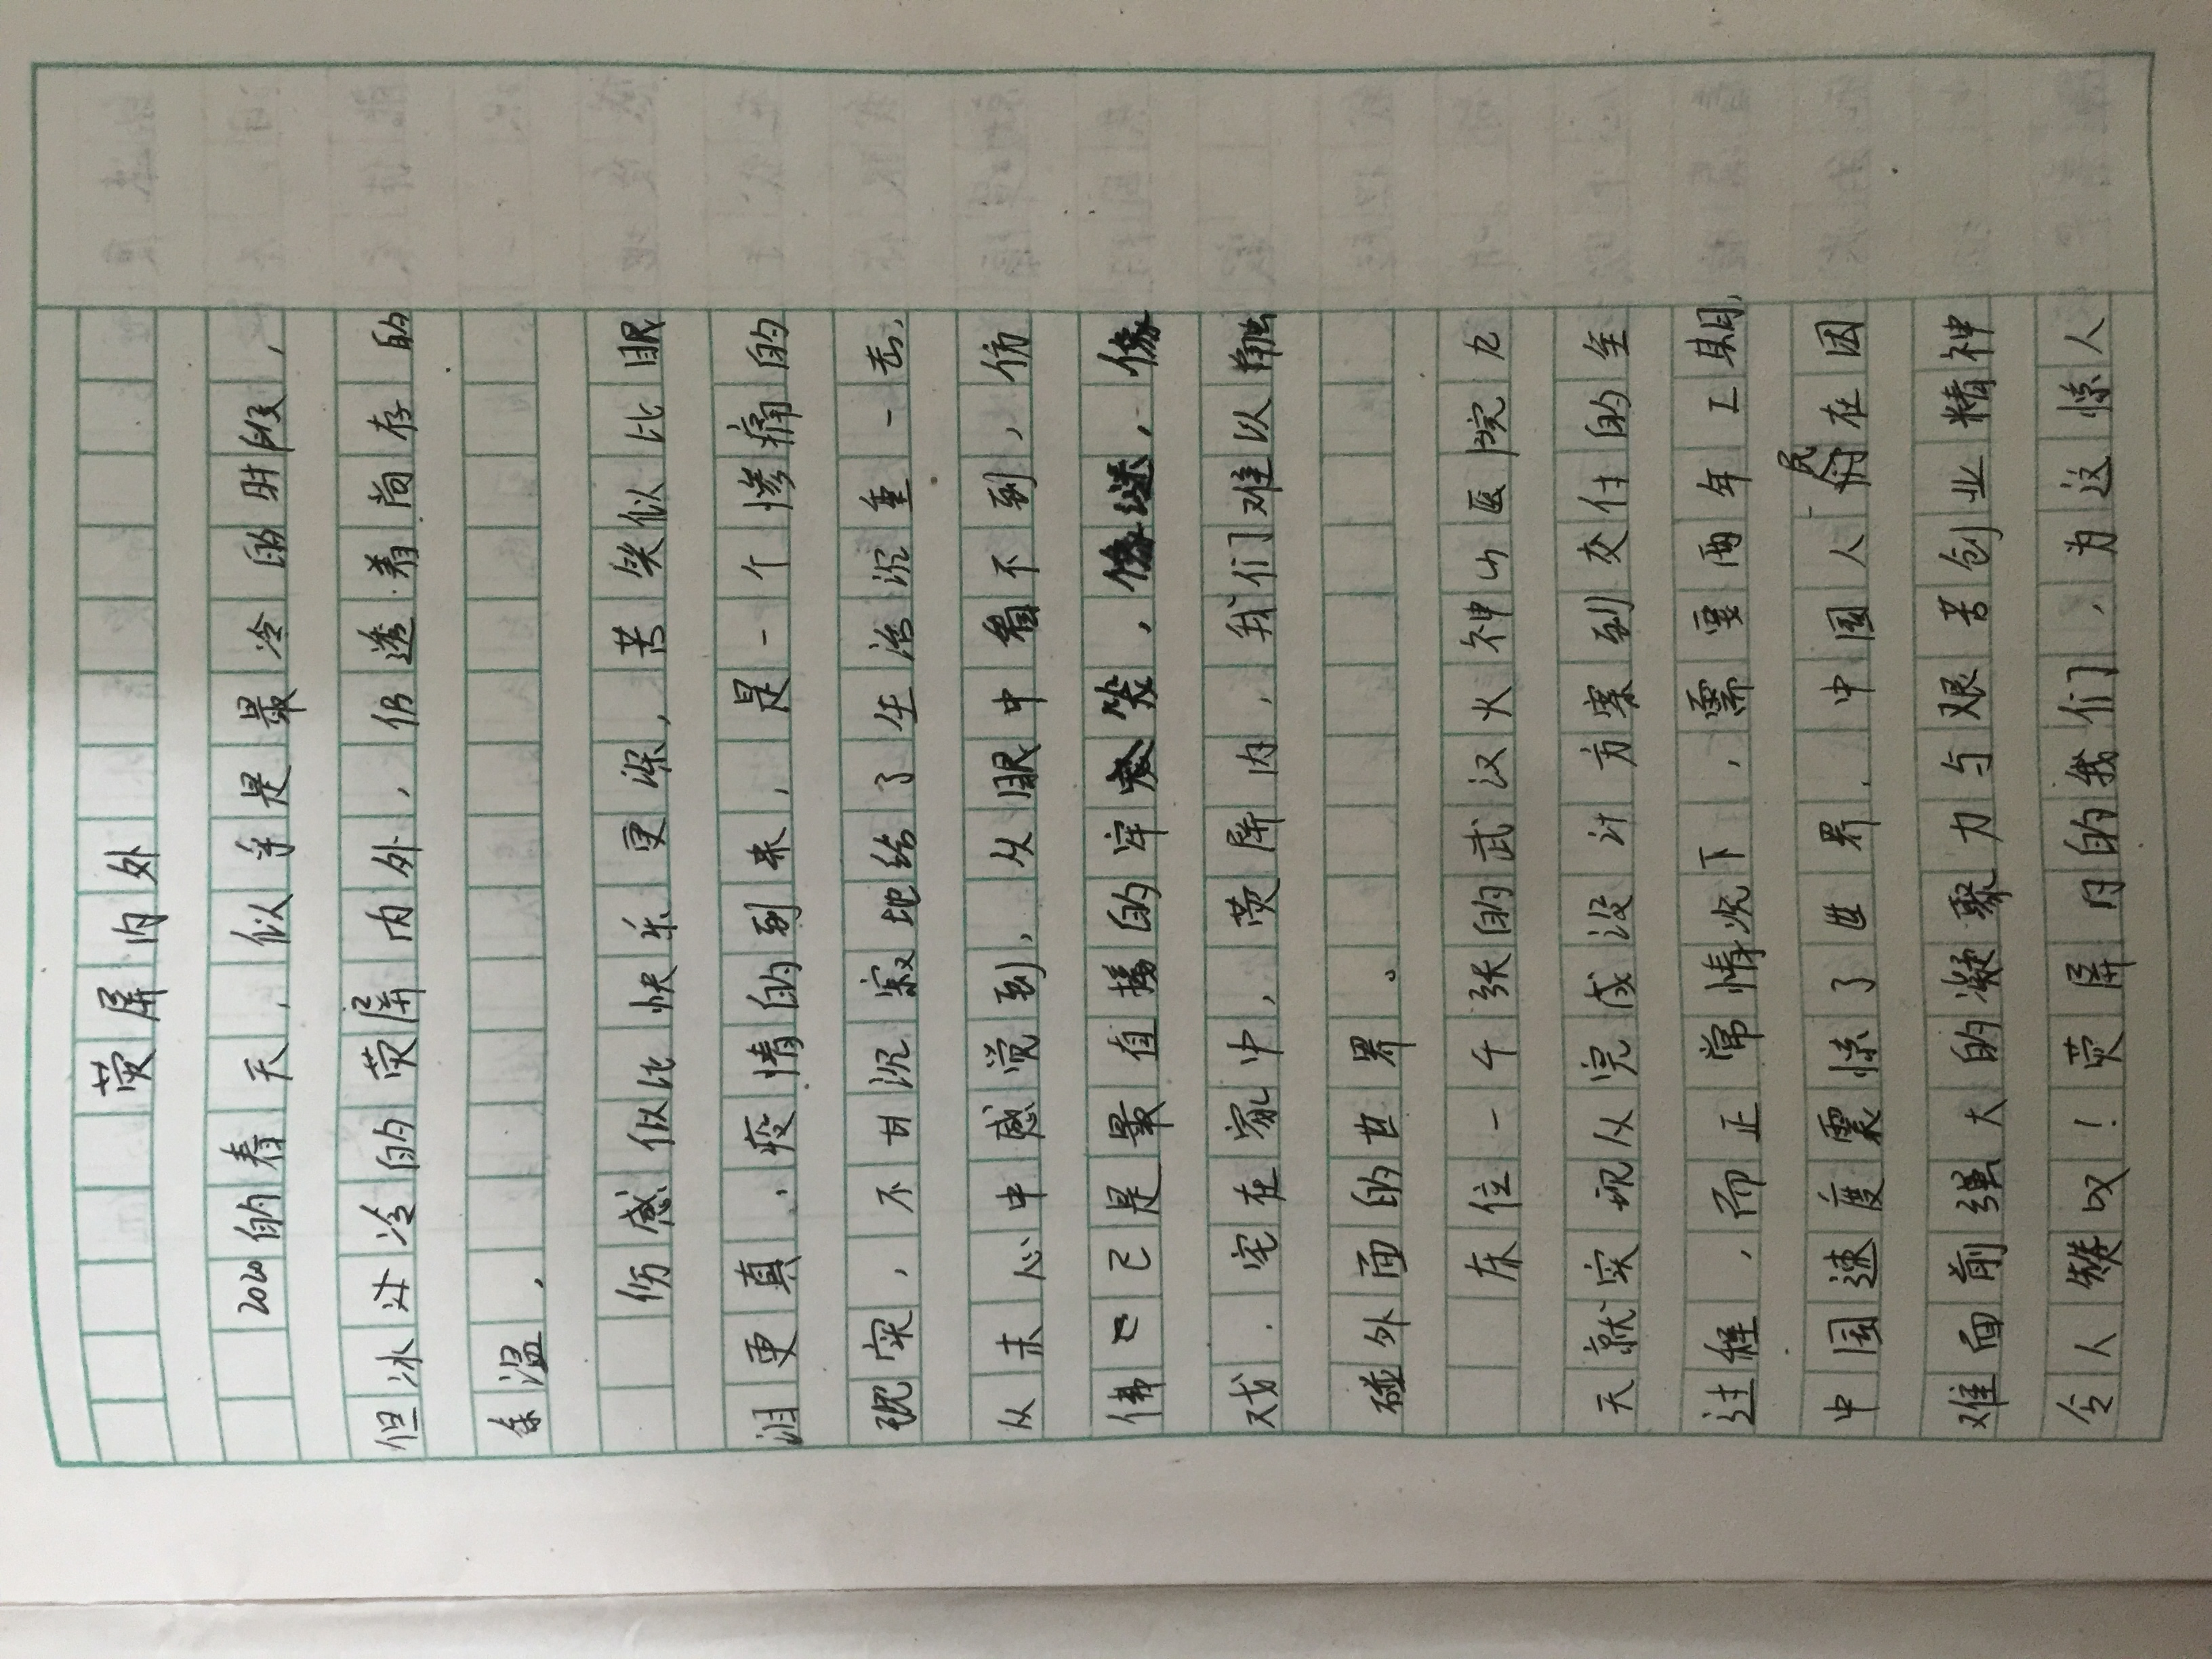 荧屏内外
2020的春天，似乎是最冷的时段，
但冰冷的荧屏内外，仍透着尚存的
余温，
伤感似比快乐更深，苦笑似比眼
泪更真，疫情的到来，是一个惨痛的
现实，不甘沉寂地给了生活沉重一击，
从未心中感觉到，从眼中看不到，仿
佛自己是最直接的牢，，
戏．宅在家中，荧屏内，我们难以触
碰外面的世界。
床位一千张的武汉火神山医院九
天就实现从完成设计方案到交付的全
过程，而正常情况下，需要两年工期，
中国速度震惊了世界，中国人民在困
难面前强大的凝聚力与艰苦创业精神
令人赞叹！荧屏内的我们，为这惊人